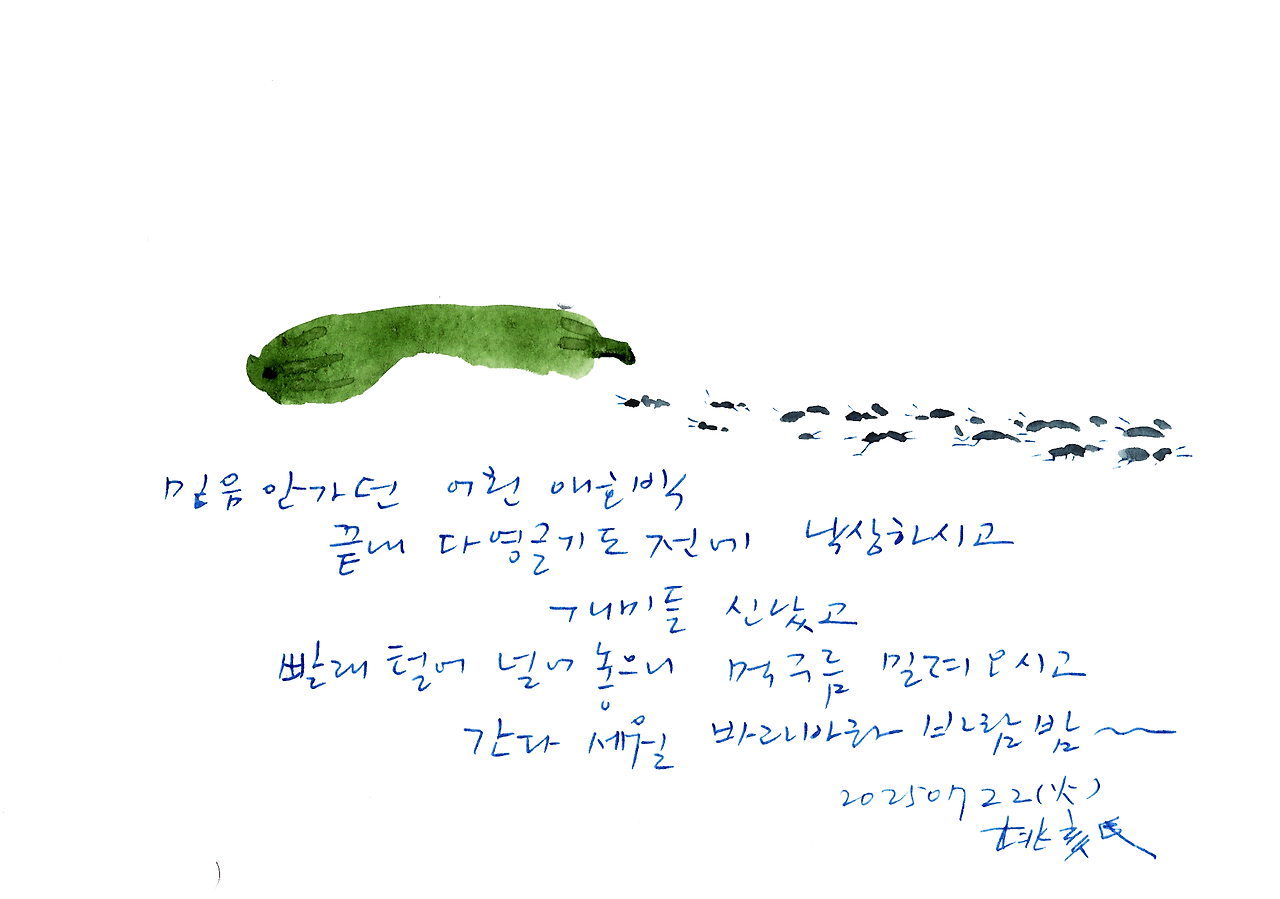 믿음 안가던 어린 애호박
끝내 다 영글기도 전에 낙상하시고
개미들 신났고
빨래 털어 널어 놓으니 먹구름 밀려오시고
간다 세월 바리바리 바람밤~~
2025 07 22 (火)